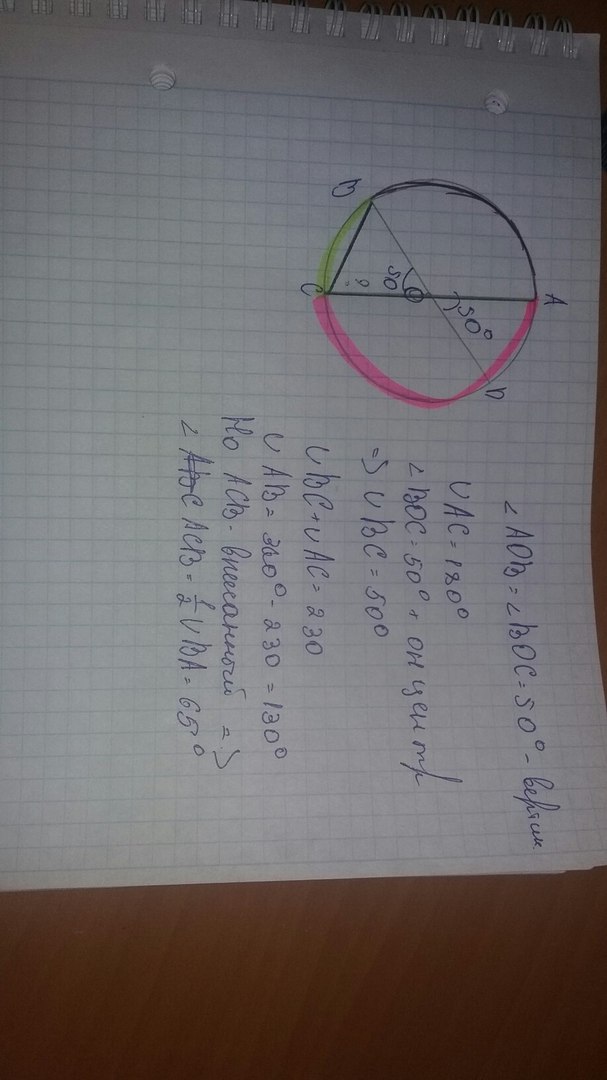 B
C
A
D
O
50
50°
?
∠AOB = ∠BOC = 50° - вертик
∪AC = 180°
∠BOC = 50° + он центр
=> ∪BC = 50°
∪BC + ∪AC = 230
∪AB = 360° - 230 = 130°
Но ACB - вписанный =>
∠ ACB = ½ ∪BA = 65°